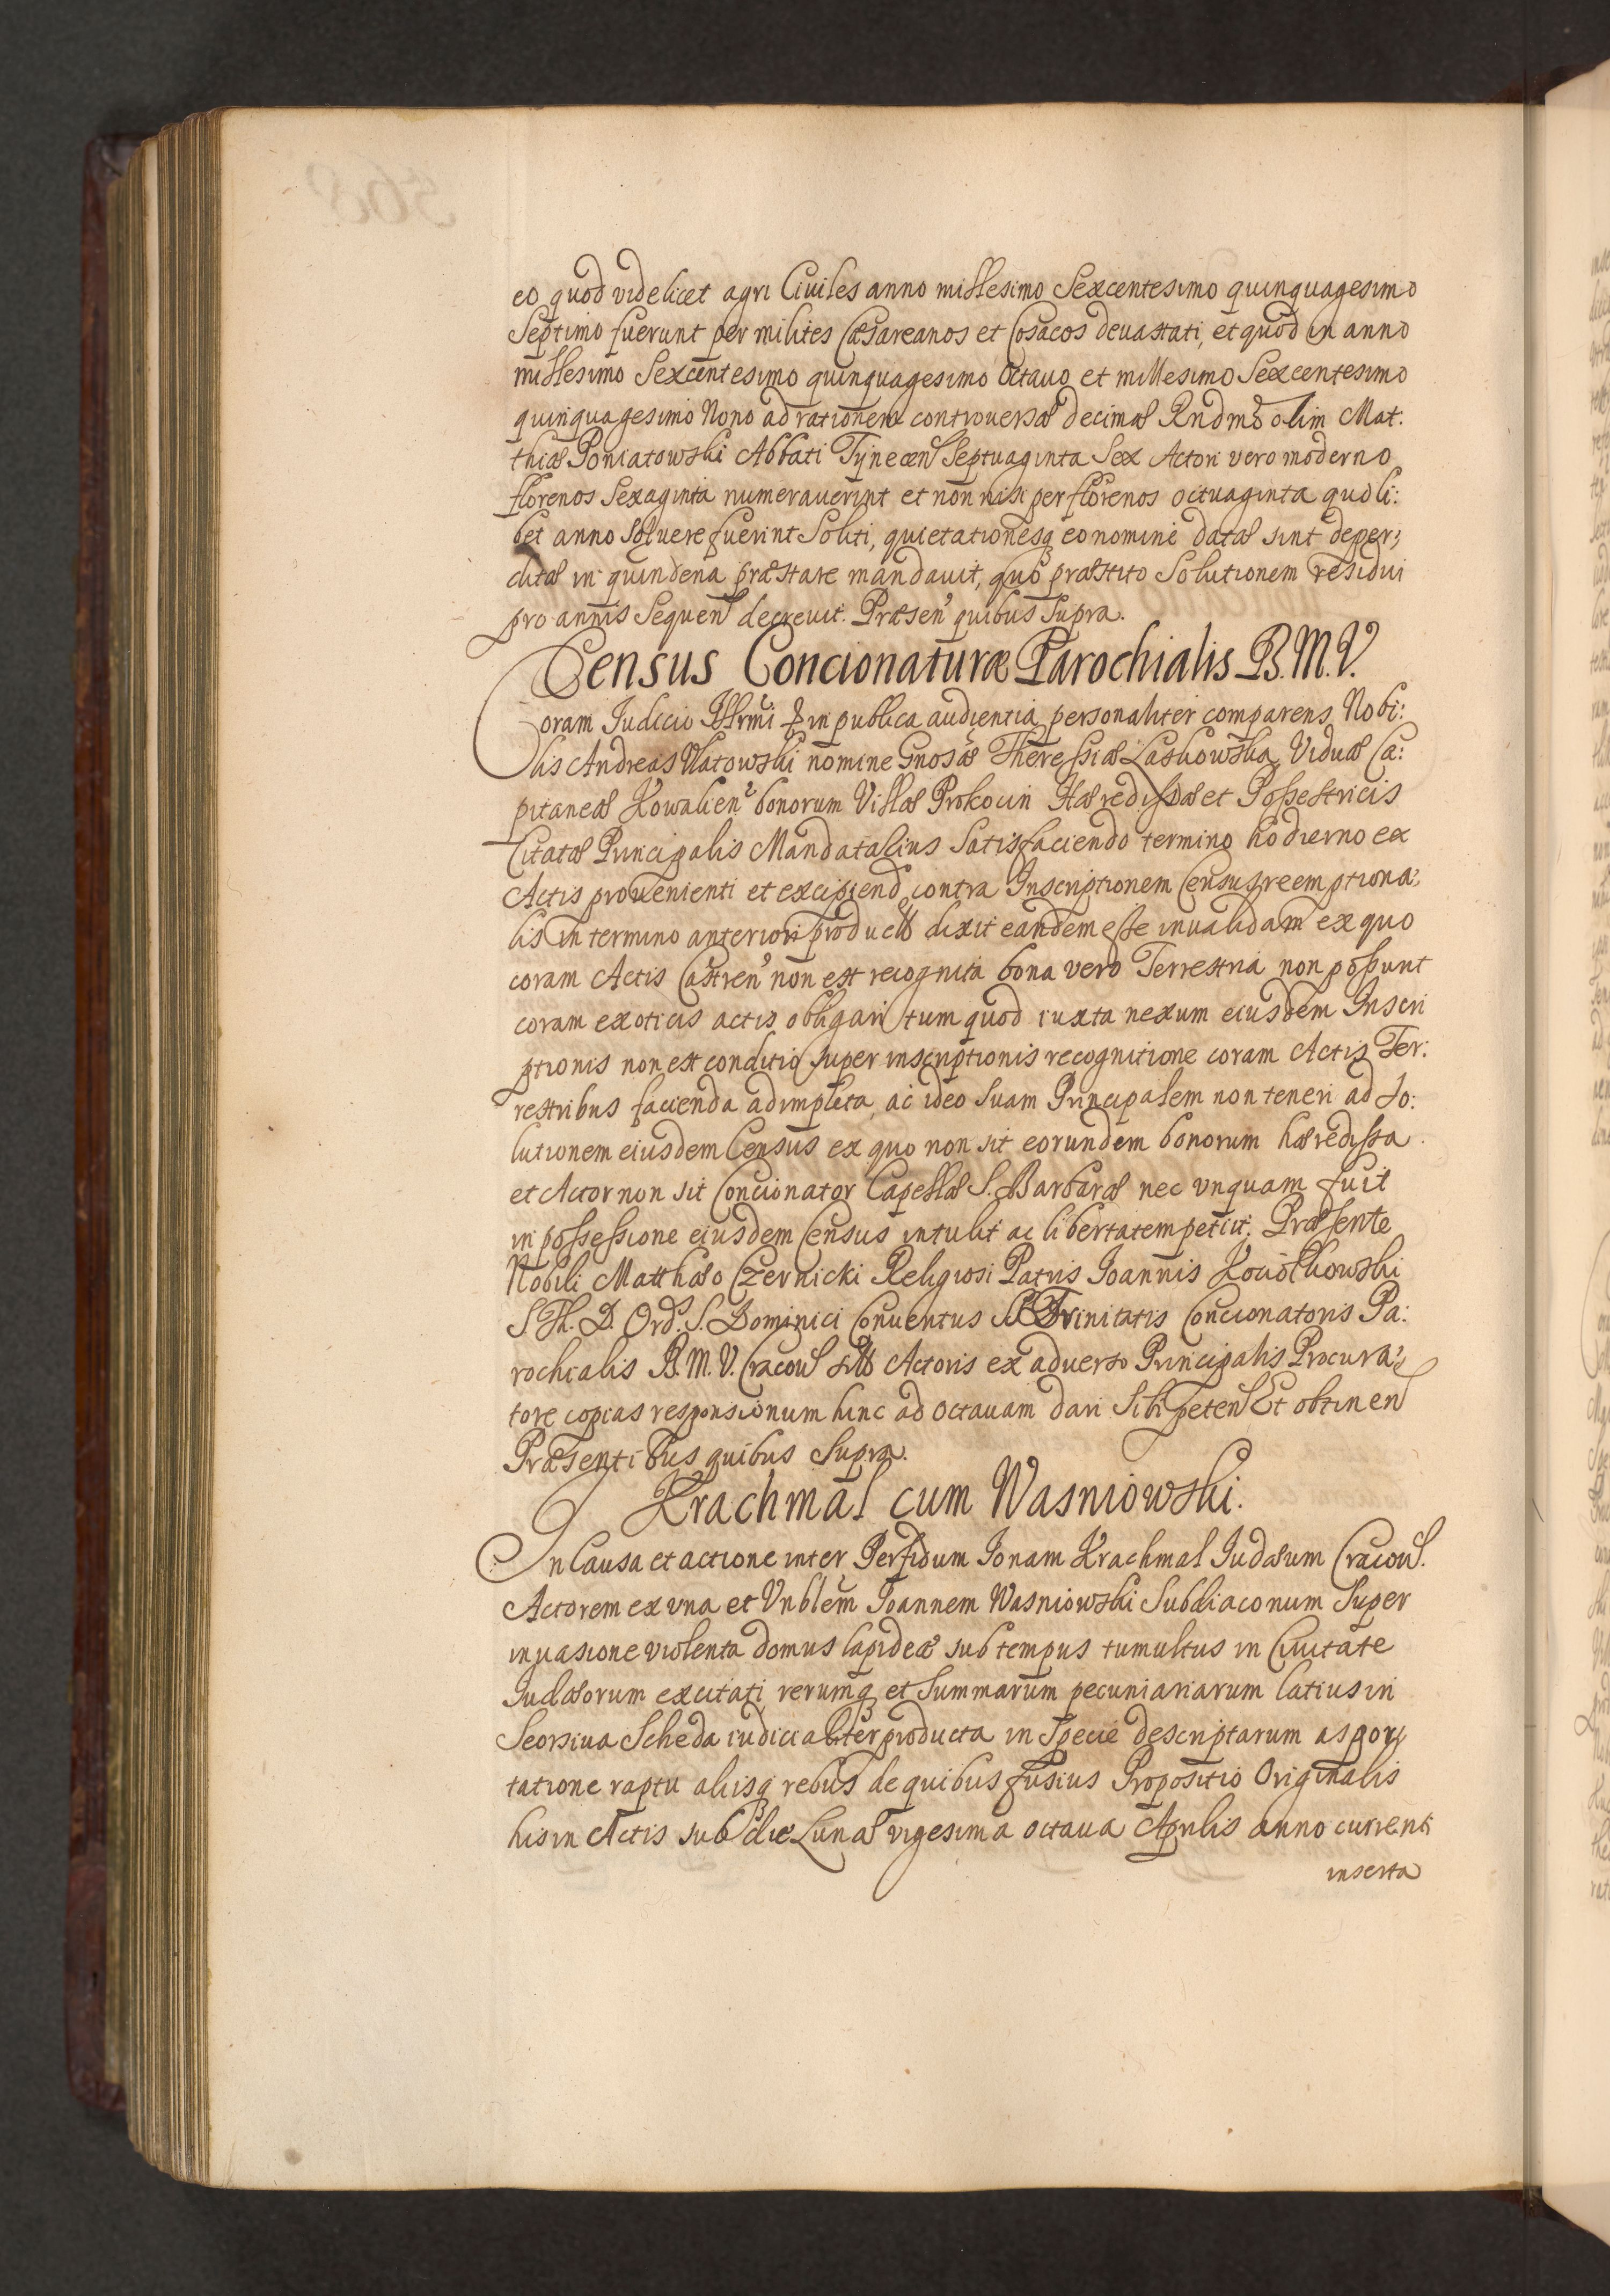 eo quod videlicet agri Civiles anno millesimo Sexcentesimo quinquagesimo
Septimo fuerunt per milites Cæsareanos et Cosacos devastati, et quod in anno
millesimo Sexcentesimo quinquagesimo Octavo et millesimo Sexcentesimo
quinquagesimo Nono ad rationem controversæ decimæ Rndmo olim Mat:
thiæ Poniatowski Abbati Tynecen Septuaginta Sex Actori vero moderno
florenos Sexaginta numeraverint et non nisi per florenos octuaginta quoli:
bet anno solvere fuerint Soliti, quietationesq eo nomine datæ sint deper:
ditæ in quindena præstare mandavit, quo præstito Solutionem residui
pro annis Sequen decrevit. Præsen quibus Supra.
Census Concionaturæ Parochialis B.M.V.
Coram Iudicio Illrmi & in publica audientia personaliter comparens Nobi:
lis Andreas Ulatowski nomine Gnosæ Theressiæ Laskowska Viduæ Ca:
pitaneæ Kowalien bonorum Villæ Prokocin Hæredissæ et Possestricis
Citatæ Principalis Mandatalius Satisfaciendo termino hodierno ex
Actis provenienti et excipiendo contra Inscriptionem Census reemptiona:
lis in termino anteriori product dixit eandem esse invalidam ex quo
coram Actis Castren non est recognita bona vero Terrestria non possunt
coram exoticis actis obligari tum quod iuxta nexum eiusdem Inscri
ptionis non est conditio super inscriptionis recognitione coram Actis Ter:
restribus facienda adimpleta, ac ideo suam Principalem non teneri ad so:
lutionem eiusdem Census ex quo non sit eorundem bonorum hæredissa
et Actor non sit Concionator Capellæ S. Barbaræ nec unquam fuit
in possessione eiusdem Census intulit ac libertatem petiit. Præsente
Nobili Matthæo Czernicki Religiosi Patris Ioannis Kociołkowski
S. Th. D. Ord. S. Dominici Conventus SS Trinitatis Concionatoris Pa:
rochialis B.M.V. Cracov Actoris ex adverso Principalis Procura:
tore copias responsionum hinc ad octavam dari Sibi peten Et obtinen
Præsentibus quibus Supra.
Krachmal cum Wasniowski.
In Causa et actione inter Perfidum Ionam Krachmal Iudæum Cracov.
Actorem ex una et Vnblem Ioannem Wasniowski Subdiaconum Super
invasione violenta domus lapideæ sub tempus tumultus in Civitate
Iudæorum excitati, rerumq et Summarum pecuniariarum latius in
Seorsiva Scheda iudicialiter producta in Specie descriptarum aspor:
tatione raptu aliisq rebus de quibus fusius Propositio Originalis
his in Actis sub die Lunæ vigesima octava Aprilis anno currenti
inserta